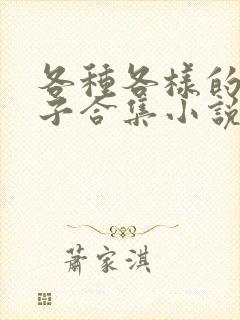 各種各樣的
子合集小説
蕭家淇